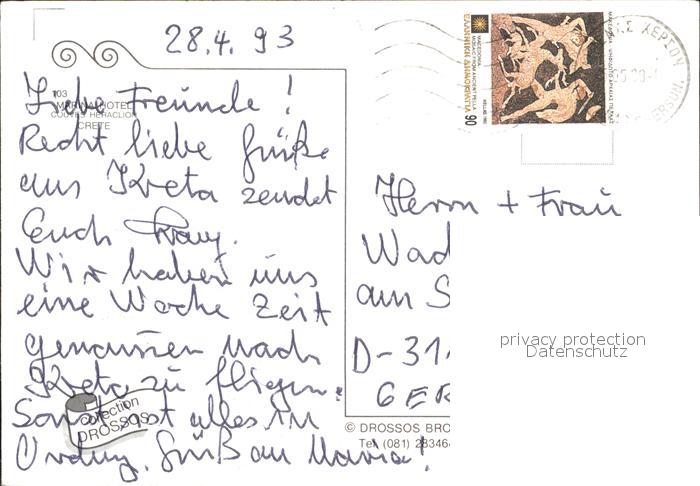 28.4.93
103
MARINA HOTEL
GOUVES HERACLION
CRETE
Liebe Freunde!
Recht liebe Grüße
aus Kreta sendet
Euch
Wir haben uns
eine Woche Zeit
genommen nach
Kreta zu fliegen.
Sonst ist alles in
Ordng. Gruß an Maria!
collection
DROSSOS
ΕΛΛΗΝΙΚΗ ΔΗΜΟΚΡΑΤΙΑ
MACEDONIA
MOSAIC FROM ANCIENT PELLA
HELLAS 1992
90
ΧΕΡΣΟΝ
Herrn + Frau
Wad
am S
D-31
GER
privacy protection
Datenschutz
© DROSSOS BRO
Tel. (081) 28346